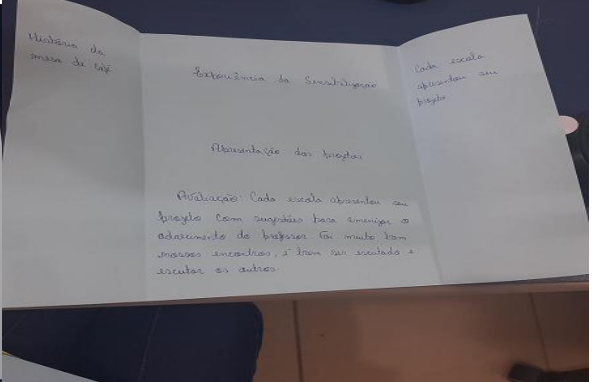 História da
mesa de café
Experiência da Sensibilização
Apresentação dos projetos
Avaliação: Cada escola apresentou seu
projeto com sugestões para amenizar o
adoecimento do professor. Foi muito bom
nossos encontros, é bom ser escutado e
escutar os outros.
Cada escola
apresentou seu
projeto